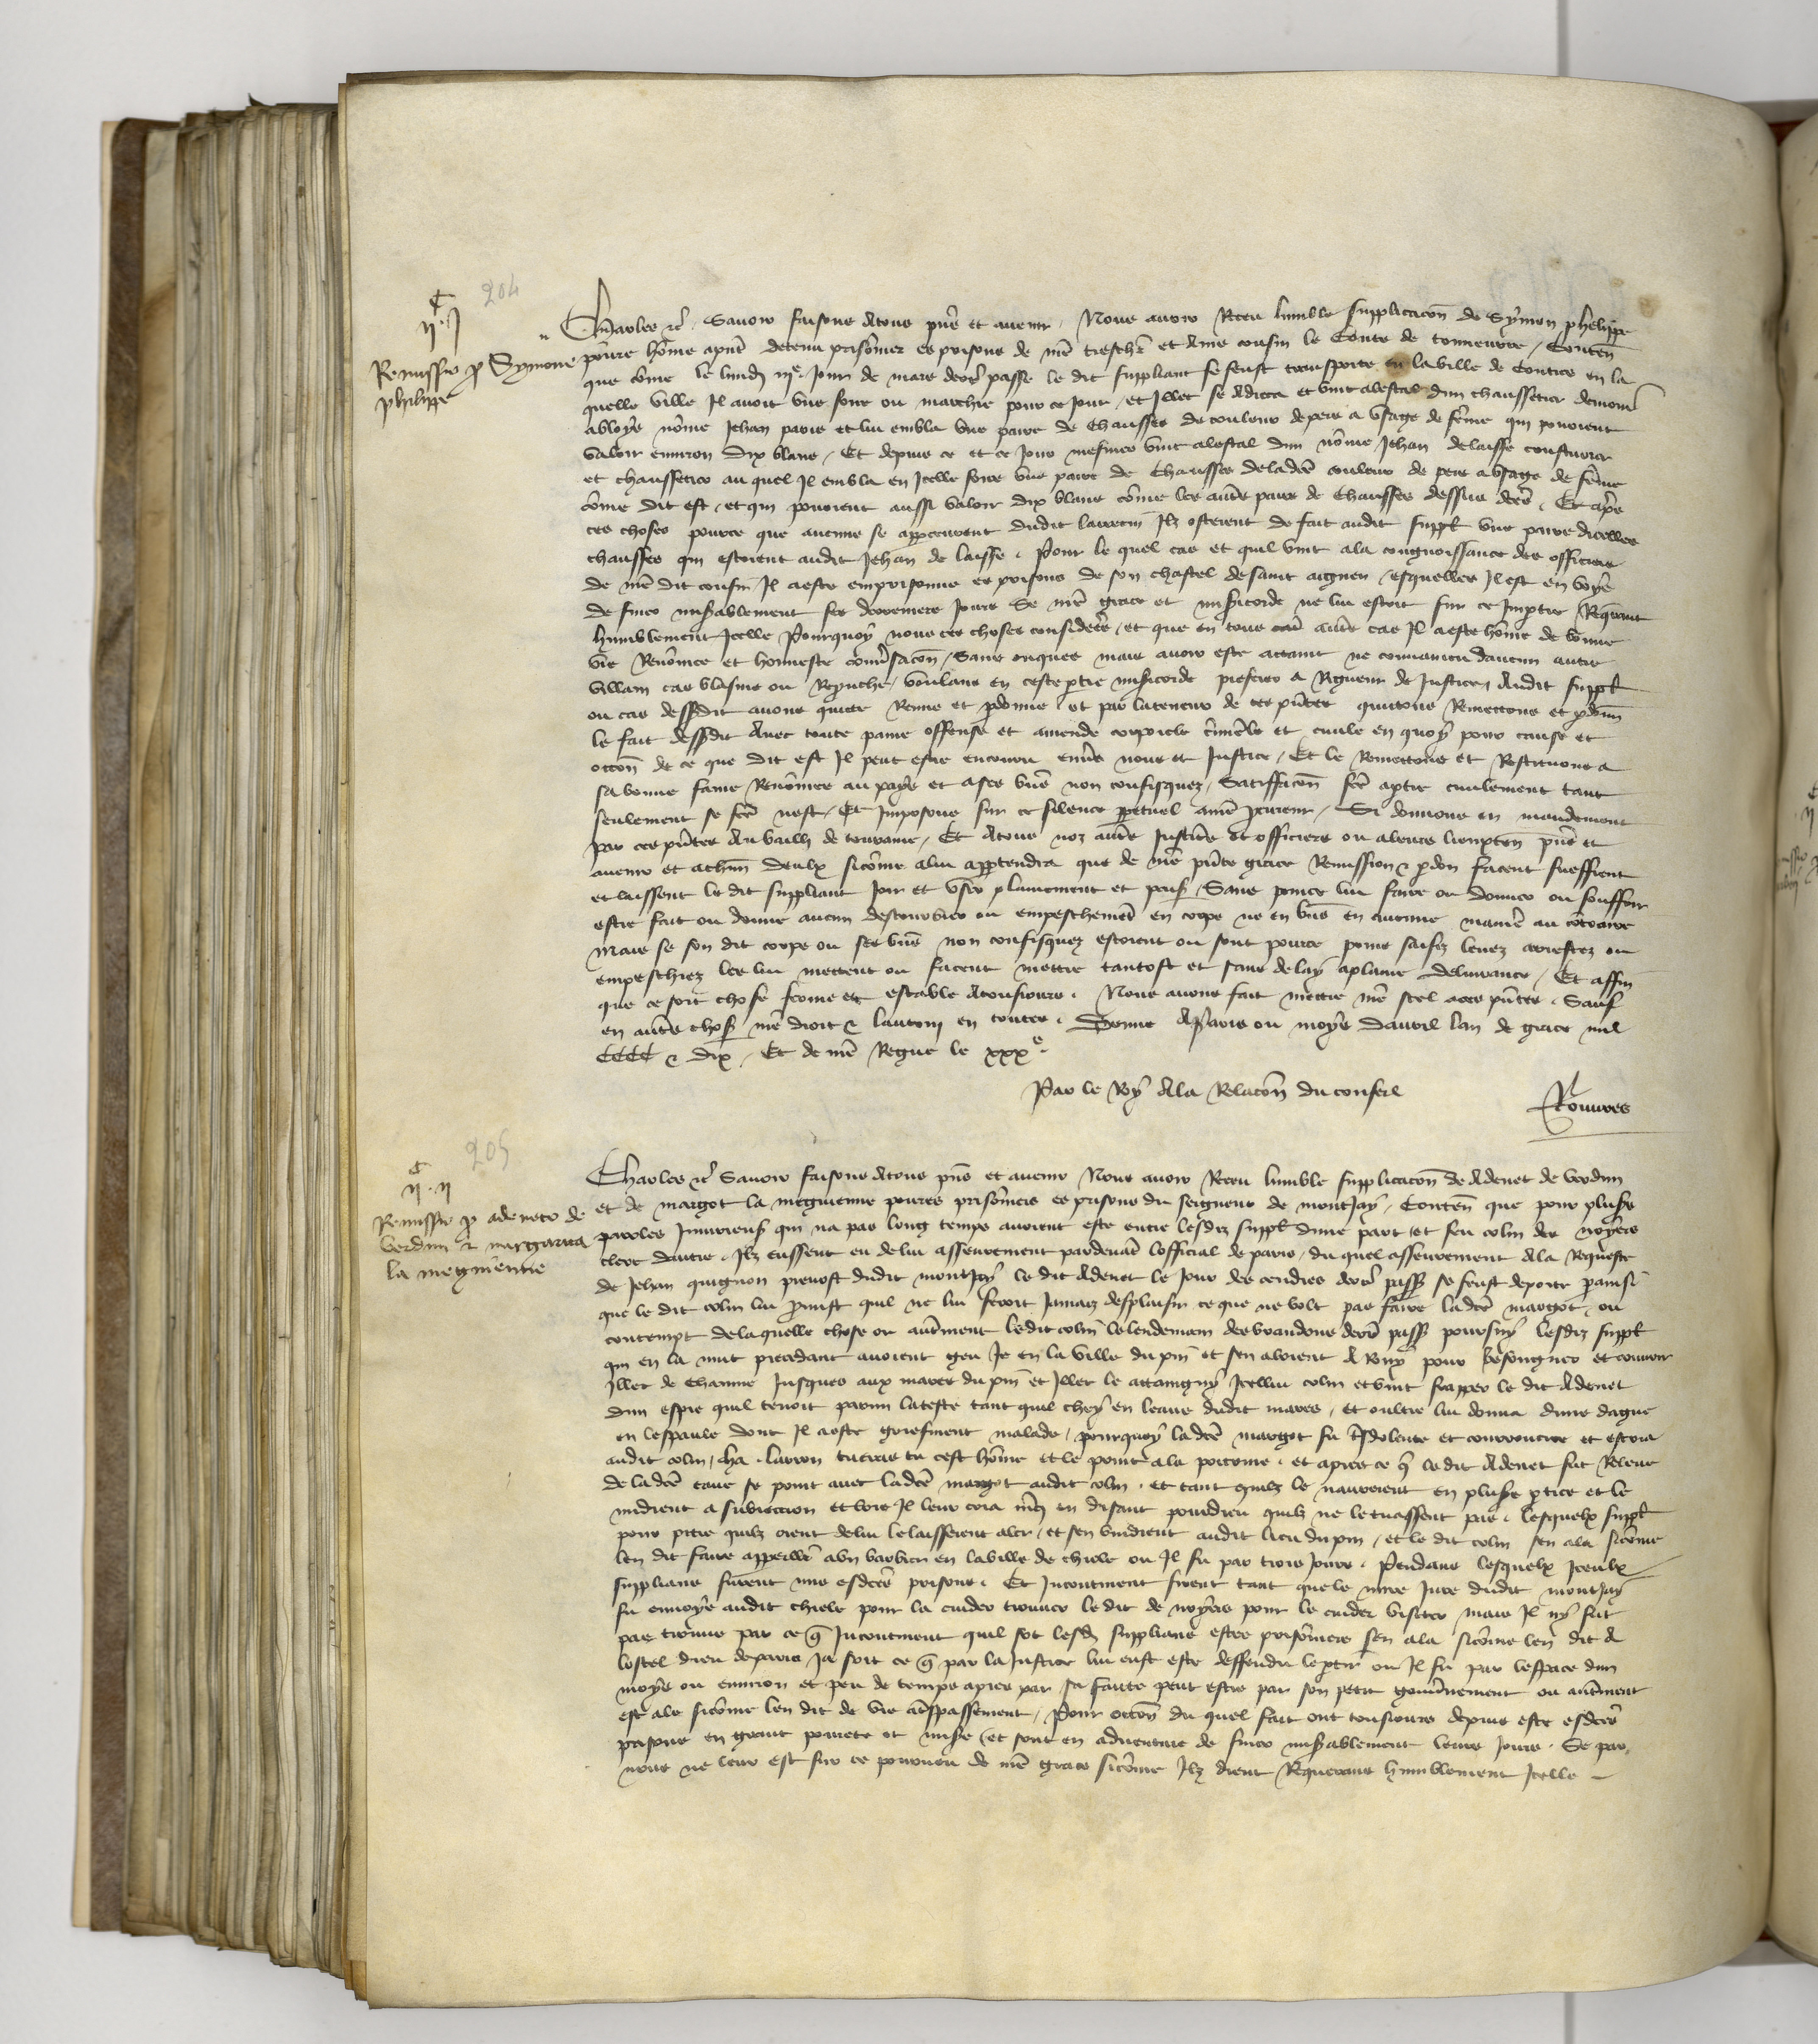 204
C
II.I
Remissio p Symone
philippe
Charles etc. Savoir faisons Atous pns et avenir. Nous avoir Receu lumble supplicacon de Symon phelippe
povre home apnt detenu prisonnier es prisons de nre treschr et Ame cousin le Conte de tonneurre, Conten
que come le lundi IIIe Jour de mars derr passe le dit suppliant se feust transporte en la ville de Contres en la
quelle ville Il avoit une foire ou marchie pour ce Jour, et Illec se Adreca et vint alestal dun chaussetier demour
abloys nome Jehan paris et lui embla une paire de Chausses de couleur de pers a usage de feme qui povoient
valoir environ dix blans, Et depuis ce et ce Jour mesmes vint alestal dun nome Jehan delaisse cousturier
et chaussetier au quel Il embla en Icelle foire une paire de Chausses deladce couleur de pers a usage de feme
come dit est, et qui povoient aussi valoir dix blans come les autres paire de Chausses dessus dces, Et apres
ces choses pource que aucuns se apperceurent dudit larrecin Ilz osterent de fait audit suppl une paire dicelles
chausses qui estoient audit Jehan de laisse. Pour le quel cas et quil vint ala congnoissance des officiers
de nre dit cousin Il aeste emprisonne es prisons de son chastel de saint aignen, esquelles Il est en voye
de finer misablement ses derreniers Jours Se nre grace et misericorde ne lui estoit sur ce Impartie Requerant
humblement Icelle Pourquoy nous ces choses considerees, et que en tous autres cas Il aeste home de bonne
vie Renomee et honneste conversacon, Sans onques mais avoir este attaint ne convaincu daucun autre
villain cas blasme ou Reprouche, voulans en ceste ptie misericorde preferer a Rigueur de Justice, Audit suppl
ou cas dessdit avons quicte Remis et pdonne et par lateneur de ces pntes quictons Remettons et pdonn
le fait dessdit Avec toute paine offense et amende corporele criminele et civile en quoy pour cause et
occon de ce que dit est Il peut estre encouru envers nous et Justice, Et le Remettons et Restituons a
sa bonne fame Renomee au pays et ases biens non confisquez, Satiffacon fce aptie civilement tant
seulement se fce nest, Et Imposons sur ce silence ppetuel anre pcureur, Si donnons en mandement
par ces pntes Au bailli de touraine, Et Atous noz autres Justiciers et officiers ou aleurs lieuxten pns et
avenir et achun deulx sicome alui appartendra que de nre pnte grace Remission et pdon facent sueffrent
et laissent le dit suppliant Joir et user plainement et paisib, Sans pource lui faire ou donner ou souffrir
estre fait ou donne aucun destourbier ou empeschemet en corps ne en biens en aucune maniere au contraire
Mais se son dit corps ou ses biens non confisquez estoient ou sont pource prins saisiz levez arrestez ou
empeschiez les lui mettent ou facent mettre tantost et sans delay aplaine delivrance, Et affin
que ce soit chose ferme et estable Atousiours. Nous avons fait mettre nre scel aces pntes. Sauf
en autres choses nre droit et lautruy en toutes. Donne Aparis ou moys davril lan de grace mil
CCCC et dix, Et de nre Regne le xxxe.
Par le Roy Ala Relacon du conseil
Rouvres
205
C
II.II
Remissio p adeneto de
verdun et margarita
la megnienne
Charles etc Savoir faisons Atous pns et avenir Nous avoir Receu lumble supplicacon de Adenet de verdun
et de margot la megnienne povres prisoniers es prisons du seigneur de montJay, Conten que pour pluses
paroles Iniurieuses qui na pas long temps avoient este entre lesdiz suppl dune part et feu colin des noyers
clerc dautre, Ilz eussent eu de lui asseurement pardevat lofficial de paris, du quel asseurement Ala Requeste
de Jehan quignon prevost dudit montJay le dit Adenet le Jour des cendres derr passe se feust deporte parmi
que le dit colin lui pmist quil ne lui feroit Jamaiz desplaisir ce que ne volt pas faire ladce margot, ou
contempt delaquelle chose or autment ledit colin lelendemain des brandons derr passe poursuy lesdiz suppl
qui en la nuit precedant avoient geu Je en la ville du pin et sen aloient A Roissy pour besongner et couvrir
Illec de chaume Jusques aux mares du pin et Illec le attaingny Icellui colin et vint frapper le dit Adenet
dun espie quil tenoit parmi lateste tant quil chey en leaue dudit mares, et oultre lui donna dune dague
en lespaule dont Il aeste griefment malade, pourquoy ladce margot fu dolente et courroucee et escria
audit colin, ha. larron tueras tu cest home et le print ala poictrine. et apres ce q le dit Adenet fut Releve
de ladce eaue se print avec ladce margot audit colin. et tant quilz le navrerent en pluses pties et le
midrent a subieccion et lors Il leur cria mercy en disant pourdieu quilz ne letuassent pas. lesquelx suppl
pour pitie quilz orent delui lelaisserent aler, et sen vindrent audit lieu du pin, et le dit colin sen ala sicome
len dit faire appeillie abn barbier en laville de chiele ou Il fu par trois Jours. Pendans lesquelx Iceulx
supplians furent mis esdces prisons. Et Incontinent firent tant quele mire Jure dudit montJay
fu envoye audit chiele pour la cuider trouver le dit de noyers pour le cuider visiter mais Il ny fut
pas trouve par ce q Incontinent quil sot lesd supplians estre prisonniers sen ala sicome len dit A
lostel dieu deparis Ja soit ce q par la Justice lui eust este deffendu leptir ou Il fu par lespace dun
moys ou environ et peu de temps apres par sa faute peut estre par son petit gouvnement ou autment
est ale sicome len dit de vie atrespassement, Pour occon du quel fait ont tousiours depuis este esdces
prisons en grant povrete et misere et sont en adventure de finer misablement leurs Jours. Se par
nous ne leur est sur ce pourveu de nre grace sicome Ilz dient Requerans humblement Icelle